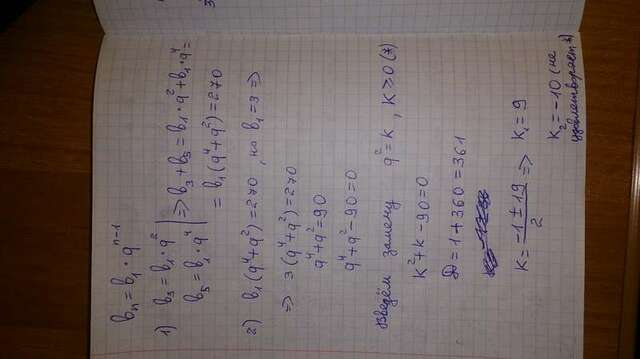 bₙ = b₁ · qⁿ⁻¹
1) b₃ = b₁ · q² | ⇒ b₃ + b₅ = b₁ · q² + b₁ · q⁴ =
b₅ = b₁ · q⁴ | = b₁(q⁴ + q²) = 270
2) b₁(q⁴ + q²) = 270, но b₁ = 3 ⇒
⇒ 3(q⁴ + q²) = 270
q⁴ + q² = 90
q⁴ + q² - 90 = 0
Введём замену q² = k, k ≥ 0 (*)
k² + k - 90 = 0
D = 1 + 360 = 361
k = (-1 ± 19)/2 ⇒ k₁ = 9
k₂ = -10 (не
удовлетворяет *)